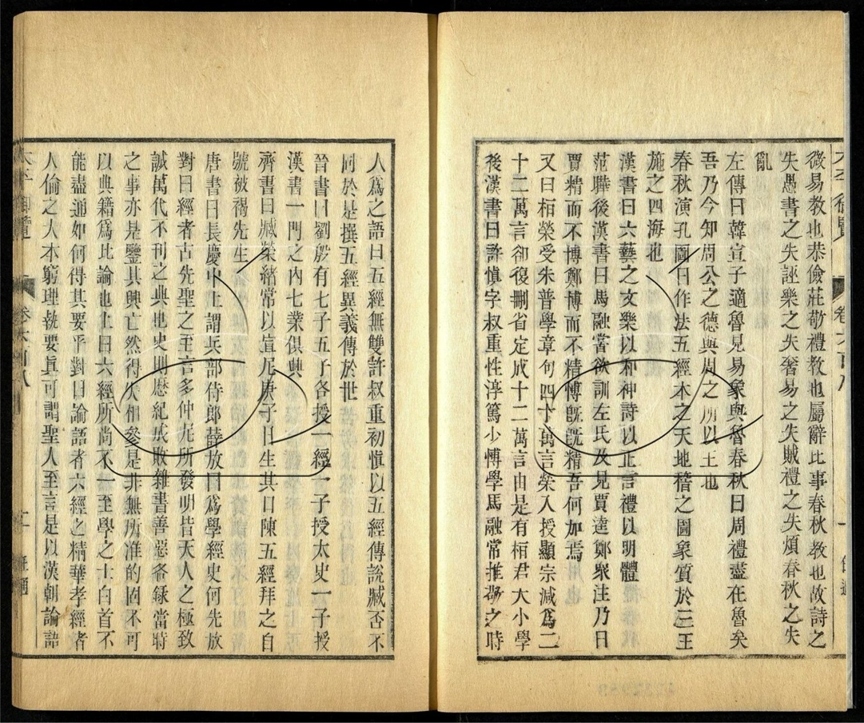 微易教也恭儉莊敬禮教也屬辭比事春秋教也故詩之
失愚書之失誣樂之失奢易之失賊禮之失煩春秋之失
亂
左傳曰韓宣子適魯見易象與魯春秋曰周禮盡在魯矣
吾乃今知周公之德與周之所以王也
春秋演孔圖曰作法五經木之天地稽之圖象質於三王
施之四海也
漢書曰六藝之文樂以和神詩以正言禮以明體
范曄後漢書曰馬融嘗欲訓左氏及見賈逵鄭衆注乃曰
賈精而不博鄭博而不精博旣旣精吾何加焉
又曰栢榮受朱普學章句四十萬言榮入授顯宗減爲二
十二萬言郤復刪省定成十二萬言由是有栢君大小學
後漢書曰許愼字叔重性淳篤少博學馬融常推敬之時
人爲之語曰五經無雙許叔重初愼以五經傳說臧否不
同於是撰五經異義傳於世
晉書曰劉殷有七子五子各授一經一子授太史一子授
漢書一門之內七業俱興
齊書曰臧榮緒常以宣尼庚子日生其日陳五經拜之自
號被褐先生
唐書曰長慶中上謂兵部侍郎薛放曰爲學經史何先放
對曰經者古先聖之至言多仲尼所發明皆天人之極致
誠萬代不刊之典也史則歷紀成敗雜書善惡各錄當時
之事亦足鑒其興亡然得失相參是非無所准的固不可
以典籍爲比論也上曰六經所尚不一至學之士白首不
能盡通如何得其要乎對曰論語者六經之精華孝經者
人倫之大本窮理執要眞可謂聖人至言是以漢朝論語